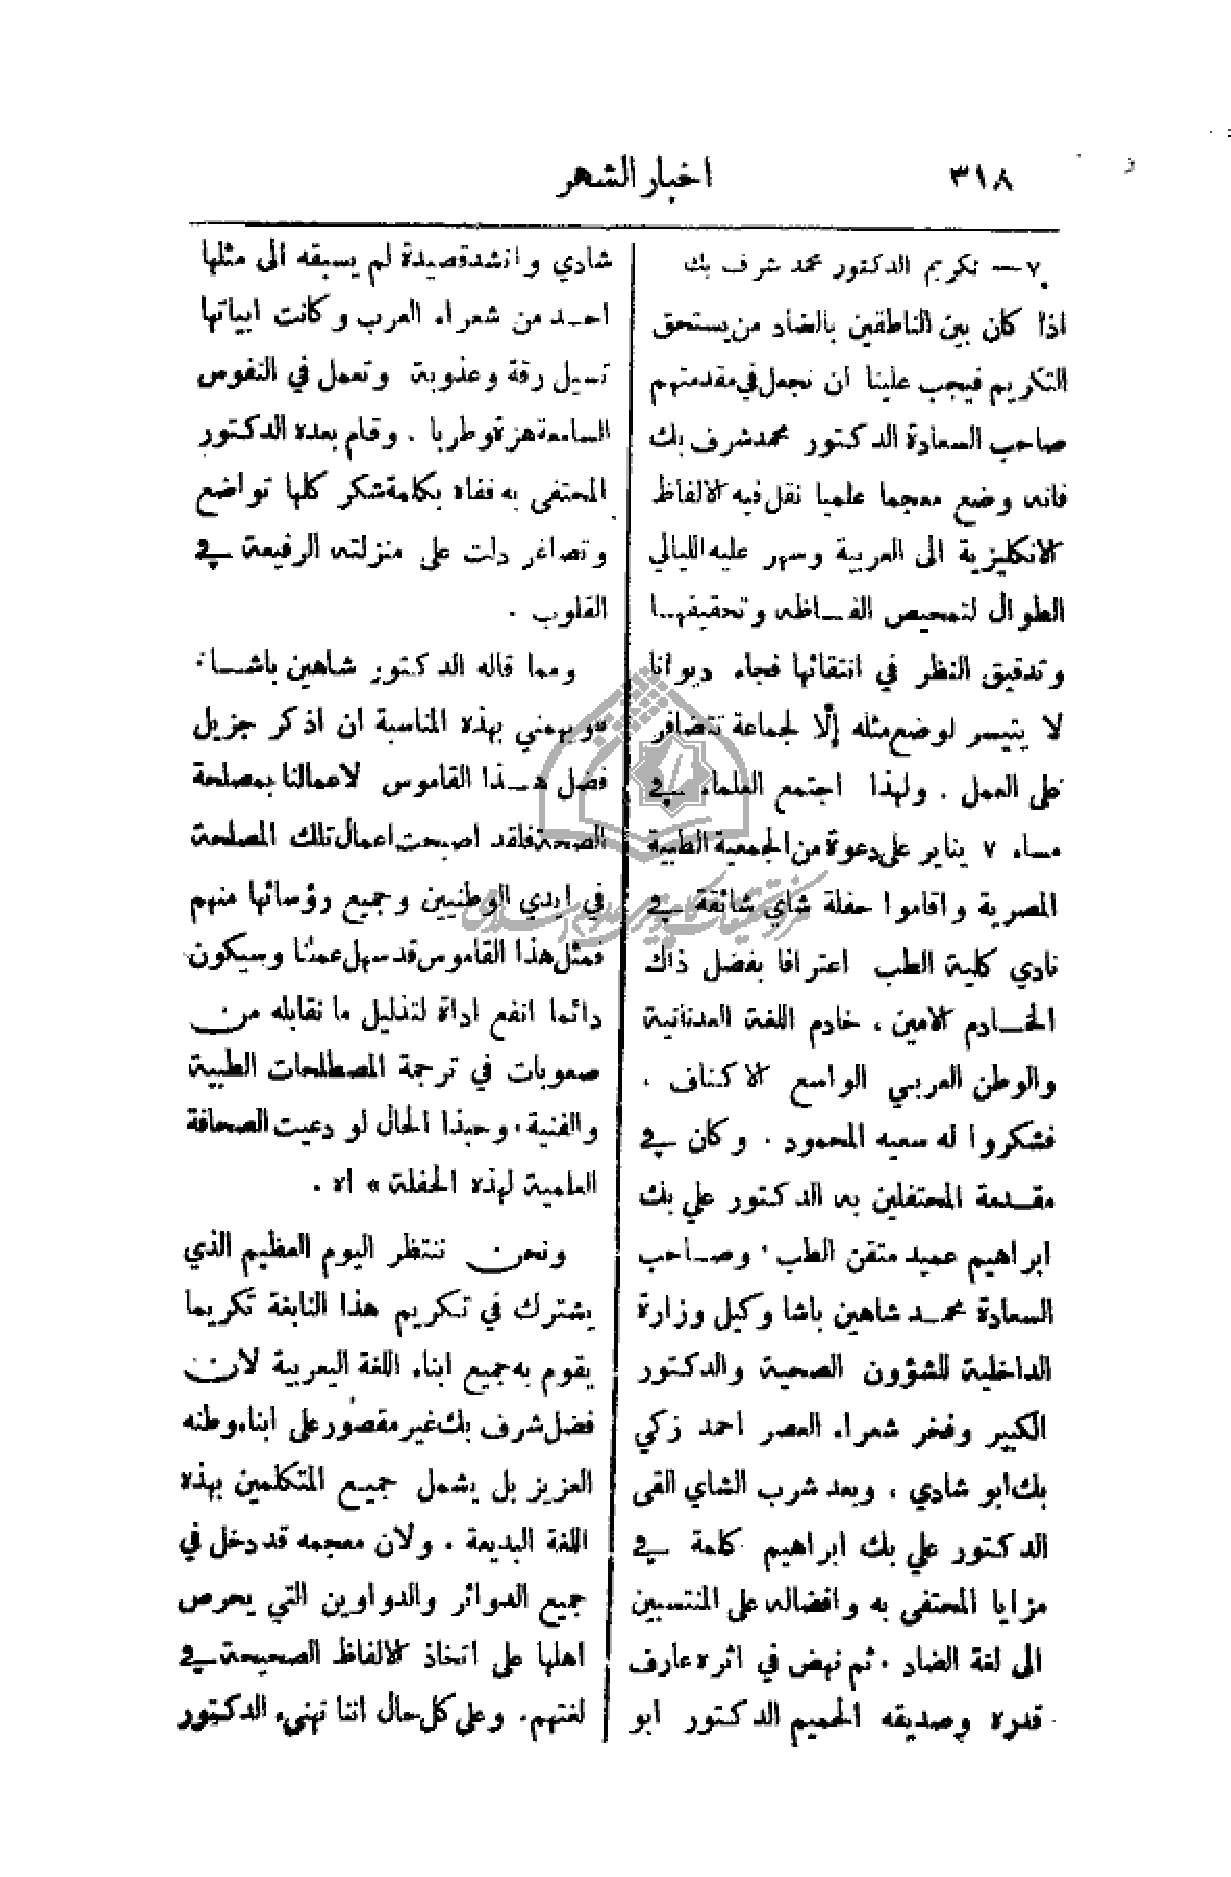 ٣١٨
اخبار الشهر
٧ — تكريم الدكتور محمد شرف بك
اذا كان بين الناطقين بالضاد من يستحق
التكريم فيجب علينا ان نجعل في مقدمتهم
صاحب السعادة الدكتور محمد شرف بك
فانه وضع معجما علميا نقل فيه الالفاظ
الانكليزية الى العربية وسهر عليه الليالي
الطوال لتمحيص الفـاظه وتحقيقهـا
وتدقيق النظر في انتقائها فجاء ديوانا
لا يتيسر لوضع مثله إلّا لجماعة تتضافر
على العمل . ولهذا اجتمع العلماء في
مساء ٧ يناير على دعوة من الجمعية الطبية
المصرية واقاموا حفلة شاي شائقة في
نادي كلية الطب اعترافا بفضل ذلك
الخـادم الامين ، خادم اللغة العدنانية
والوطن العربي الواسع الاكناف .
فشكروا له سعيه المحمود . وكان في
مقـدمة المحتفلين به الدكتور علي بك
ابراهيم عميد متقن الطب ، وصـاحب
السعادة محمـد شاهين باشا وكيل وزارة
الداخلية للشؤون الصحية والدكتور
الكبير وفخر شعراء العصر احمد زكي
بك ابو شادي . وبعد شرب الشاي القى
الدكتور علي بك ابراهيم كلمة في
مزايا المحتفى به وافضاله على المنتسبين
الى لغة الضاد . ثم نهض في اثره عارف
قدره وصديقه الحميم الدكتور ابو
شادي وانشد قصيدة لم يسبقه الى مثلها
احـد من شعراء العرب وكانت ابياتها
تسيل رقة وعذوبة وتعمل في النفوس
السامعة هزة وطربا . وقام بعده الدكتور
المحتفى به ففاه بكلمة شكر كلها تواضع
وتصاغر دلت على منزلته الرفيعة في
القلوب .
ومما قاله الدكتور شاهين باشـا :
« ويهمني بهذه المناسبة ان اذكر جزيل
فضل هـذا القاموس لاعمالنا بمصلحة
الصحة فلقد اصبحت اعمال تلك المصلحة
في ايدي الوطنيين وجميع رؤسائها منهم
فمثل هذا القاموس قد سهل عملنا وسيكون
دائما انفع اداة لتذليل ما نقابله من
صعوبات في ترجمة المصطلحات الطبية
والفنية ، وحبذا الحال لو دعيت الصحافة
العلمية لهذه الحفلة » اه .
ونحن ننتظر اليوم العظيم الذي
يشترك في تكريم هذا النابغة تكريما
يقوم به جميع ابناء اللغة اليعربية لان
فضل شرف بك غير مقصور على ابناء وطنه
العزيز بل يشمل جميع المتكلمين بهذه
اللغة البديعة . ولان معجمه قد دخل في
جميع الدوائر والدواوين التي يحرص
اهلها على اتخاذ الالفاظ الصحيحة في
لغتهم . وعلى كل حال اننا نهنيء الدكتور